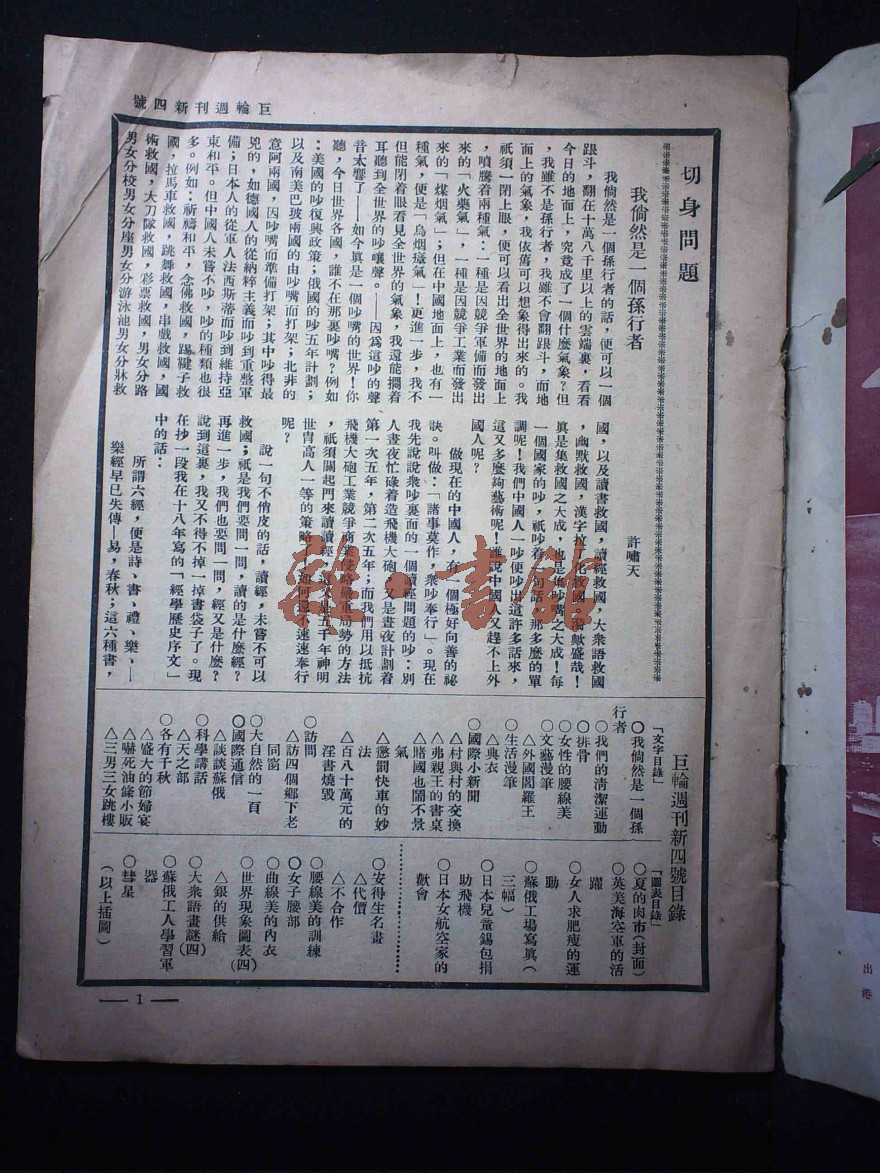 巨輪週刊新四號
切身問題
我倘然是一個孫行者
許嘯天
我倘然是一個孫行者的話，便可以一個
跟斗，翻在十萬八千里以上的雲端裏，看看
今日的地面上，究竟成了一個什麼氣象？但
，我雖不是孫行者，我雖不會翻跟斗，而地
面上的氣象，我依舊可以想象得出來的。我
祇須一閉上眼，便可以看出全世界的地面上
，噴騰着兩種氣：一種是因競爭軍備而發出
來的「火藥氣」，一種是因競爭工業而發出
來的「煤烟氣」；但在中國地面上，也有一
種氣，便是「烏烟瘴氣」！更進一步，我不
但能閉着眼看見全世界的氣象，我還能擱着
耳聽到全世界的吵嚷聲。——因爲這吵的聲
音太響了——如今眞是一個吵嘴的世界！你
聽，今日世界各國，誰不在那裏吵嘴？例如
：美國的吵復興政策；俄國的吵五年計劃；
以及南美巴玻兩國的由吵嘴而打架；北非的
意阿兩國，因吵嘴而準備打架；其中吵得最
兇的，如德國人的從納粹主義而吵到重整軍
備；日本人的從軍人法西斯蒂而吵到維持亞
東和平。但中國人未嘗不吵，吵的種類也很
多。例如：祈禱和平，念佛救國，踢毽子救
國，拉馬車救國，跳舞救國，串戲救國，國
術救國，大刀隊救國，彩票救國，男女分路
男女分校男女分座男女分游泳池男女分牀救
國，以及讀書救國，讀經救國，大衆語救國
，幽默救國，漢字拉丁化救國。猗歟盛哉！
眞是集救國之大成，也是集吵嘴之大成！每
一個國家的吵，祇吵着一句話，那多麼的單
調呢！我們中國人一吵便吵出這許多話來，
這又多麼夠藝術呢！誰說中國人又趕不上外
國人呢？
做現在的中國人，有一個極好向善的祕
訣。叫做：「諸事莫作，衆吵奉行」。現在
我先說說衆吵裏面的一個讀經問題的吵：別
人晝夜忙碌着造飛機大砲，又是晝夜計劃着
第一次五年，第二次五年；而我們用以抵抗
飛機大砲工業競爭商業侵略嚴重局勢的方法
，祇須關起門來讀讀經，這又是五千年神明
世胄高人一等的策略，如何還不速速奉行
呢？
說一句不俏皮的話，讀經，未嘗不可以
救國；祇是我們要問一問，讀的是什麼經？
再進一步，我們也要問一問，經又是什麼？
說到這裏，我又不得不掉一掉書袋子了。現
在抄一段我在十八年寫的「經學歷史序文」
中的話：
所謂六經，便是詩、書、禮、樂、—
樂經早已失傳—易，春秋；這六種書，
巨輪週刊新四號目錄
「文字目錄」
○我倘然是一個孫
行者
○我們的清潔運動
○排骨
○女性的腰線美
○文藝漫筆
△外國閻羅王
○生活漫筆
△典衣
○國際小新聞
△村與村的交換
△弗親王的書桌
△賭國也鬧不景
氣
△懲罰快車的妙
法
△百八十萬元的
淫書燒毀
○訪問
△訪四個鄉下老
同窗
○大自然的一頁
○國際通信
△談談蘇俄
○科學講話
△天之部
○各有千秋
△盛大的節婦宴
△嚇死油條小販
△三男三女跳樓
「圖表目錄」
○夏的肉市（封面）
○英美海空軍的活
躍
○女人求肥瘦的運
動
○蘇俄工場寫眞（
三幅）
○日本兒童錫包捐
助飛機
○日本女航空家的
歡會
○安得生名畫
△代價
△不合作
○腰線美的訓練
○女子腰部
○曲線美的內衣
○世界現象圖表（四）
△銀的供給
○大衆語畫謎（四）
○蘇俄工人學習軍
器
○彗星
（以上插圖）
— 1 —
雜·書館
出
港